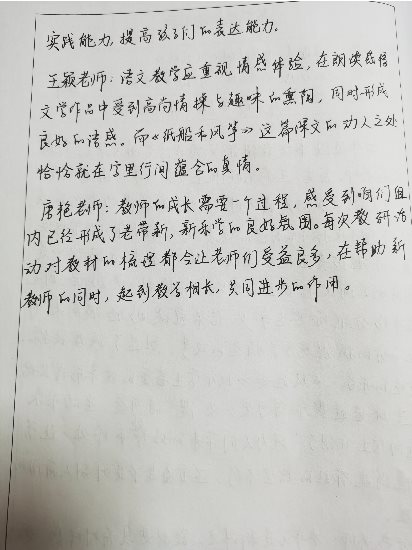 实践能力,提高孩子们的表达能力。
王颖老师:语文教学应重视情感体验,在朗读感悟
文学作品中受到高尚情操与趣味的熏陶,同时形成
良好的语感。而《纸船和风筝》这篇课文的动人之处
恰恰就在字里行间蕴含的真情。
唐艳老师:教师的成长需要一个过程,感受到咱们组
内已经形成了老带新,新乐学的良好氛围。每次教研活
动对教材的梳理都会让老师们受益良多,在帮助新
教师的同时,起到教学相长,共同进步的作用。